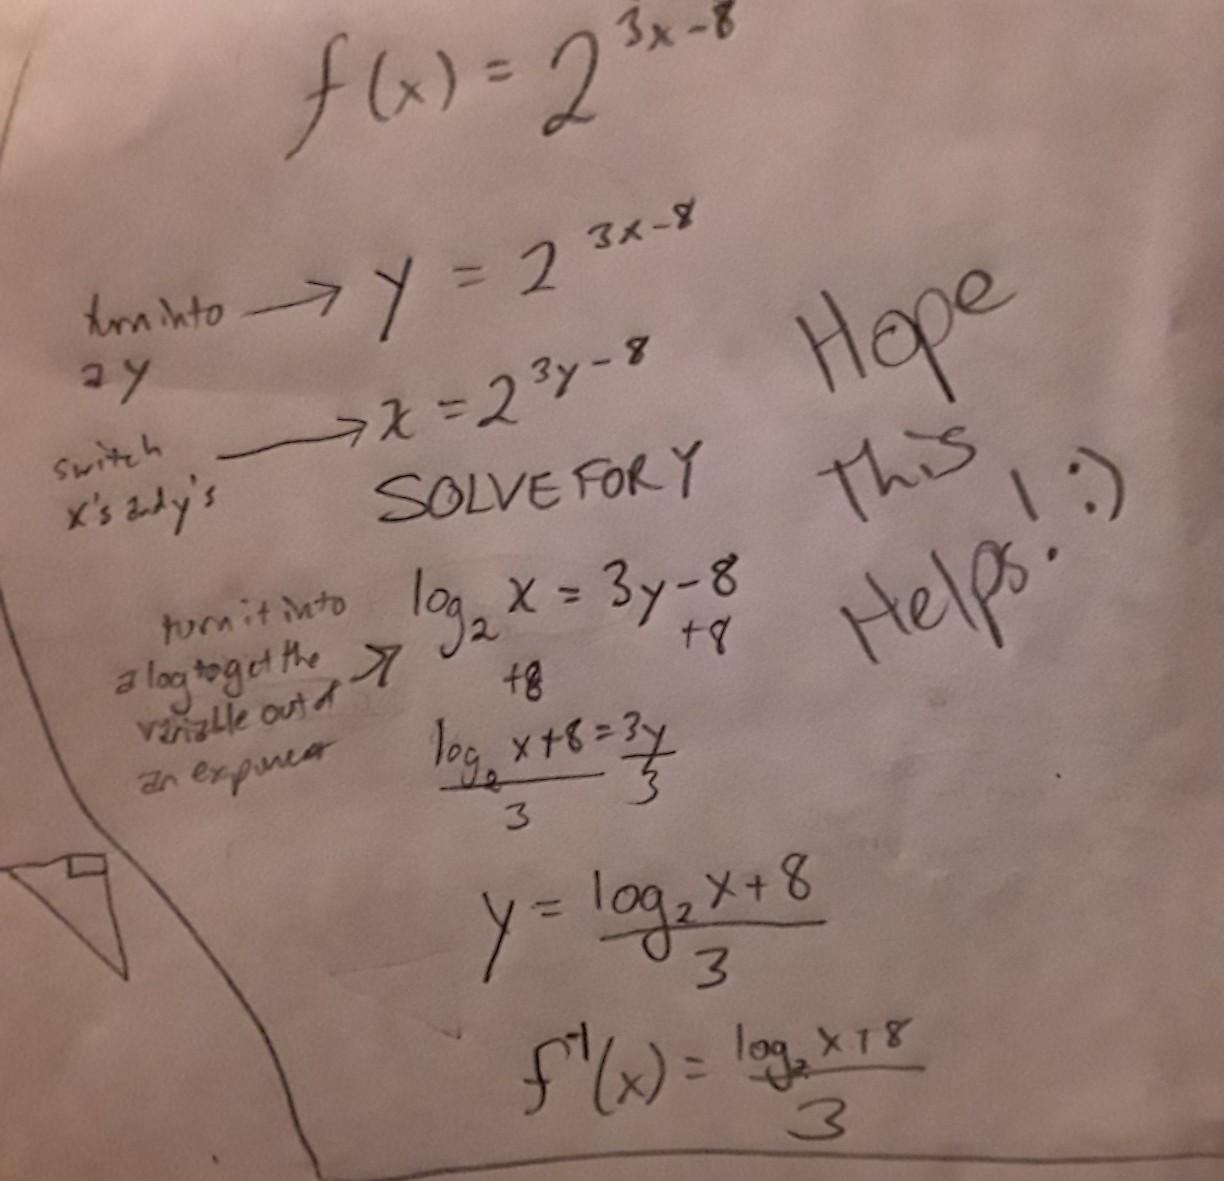 f(x) = 2^{3x-8}
turn into → y = 2^{3x-8}
a y
switch → x = 2^{3y-8}
x's and y's
SOLVE FOR Y
turn it into
a log to get the →
variable out of
an exponent
log₂ x = 3y - 8
+8 +8
log₂ x + 8 = 3y
3 3
y = log₂ x + 8
3
f⁻¹(x) = log₂ x + 8
3
Hope
This
Helps! :)